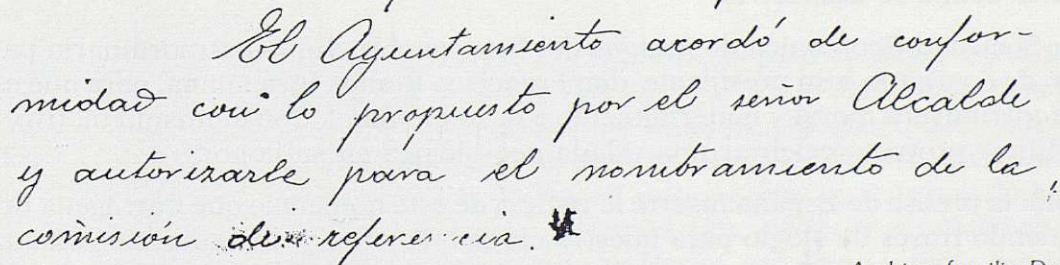 El Ayuntamiento acordó de confor-
midad con lo propuesto por el señor Alcalde
y autorizarle para el nombramiento de la
comisión de referencia.